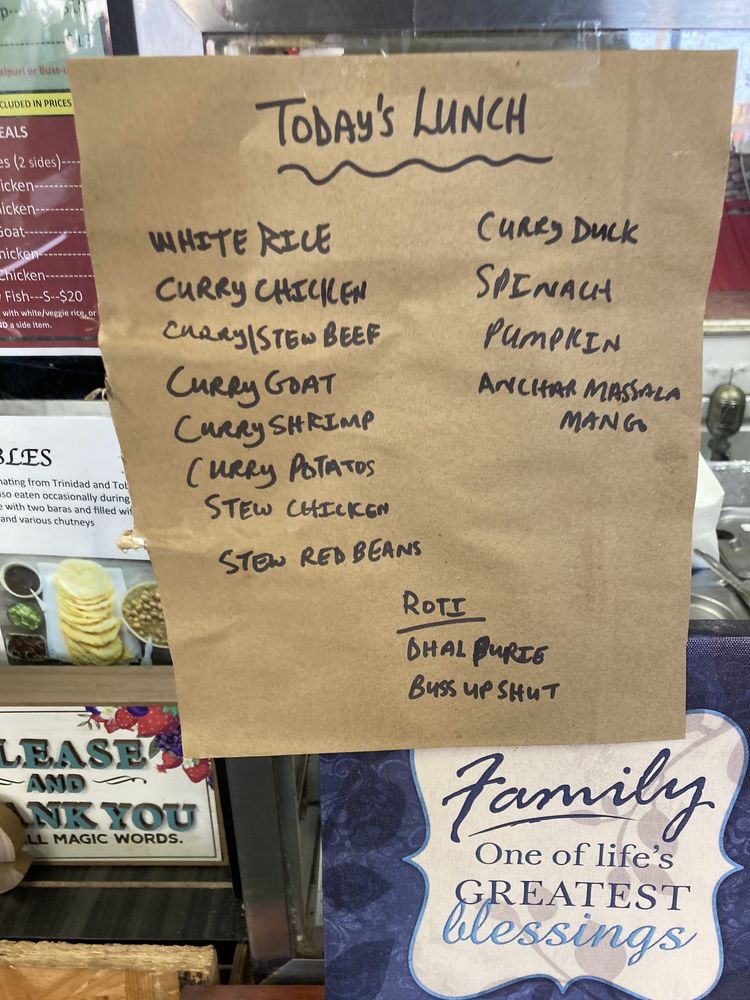 TODAY'S LUNCH
WHITE RICE
CURRY CHICKEN
CURRY/STEW BEEF
CURRY GOAT
CURRY SHRIMP
CURRY POTATOS
STEW CHICKEN
STEW RED BEANS
CURRY DUCK
SPINACH
PUMPKIN
ANCHAR MASSALA
MANGO
ROTI
DHAL PURIE
BUSS UP SHUT
alpuri or Buss-u
CLUDED IN PRICES
EALS
es (2 sides)----
icken---------
icken---------
Goat---------
hicken--------
Chicken------
Fish---S--$20
with white/veggie rice, or
ND a side item.
BLES
nating from Trinidad and Tob
so eaten occasionally during
e with two baras and filled wit
and various chutneys
LEASE
AND
ANK YOU
LL MAGIC WORDS.
Family
One of life's
GREATEST
blessings